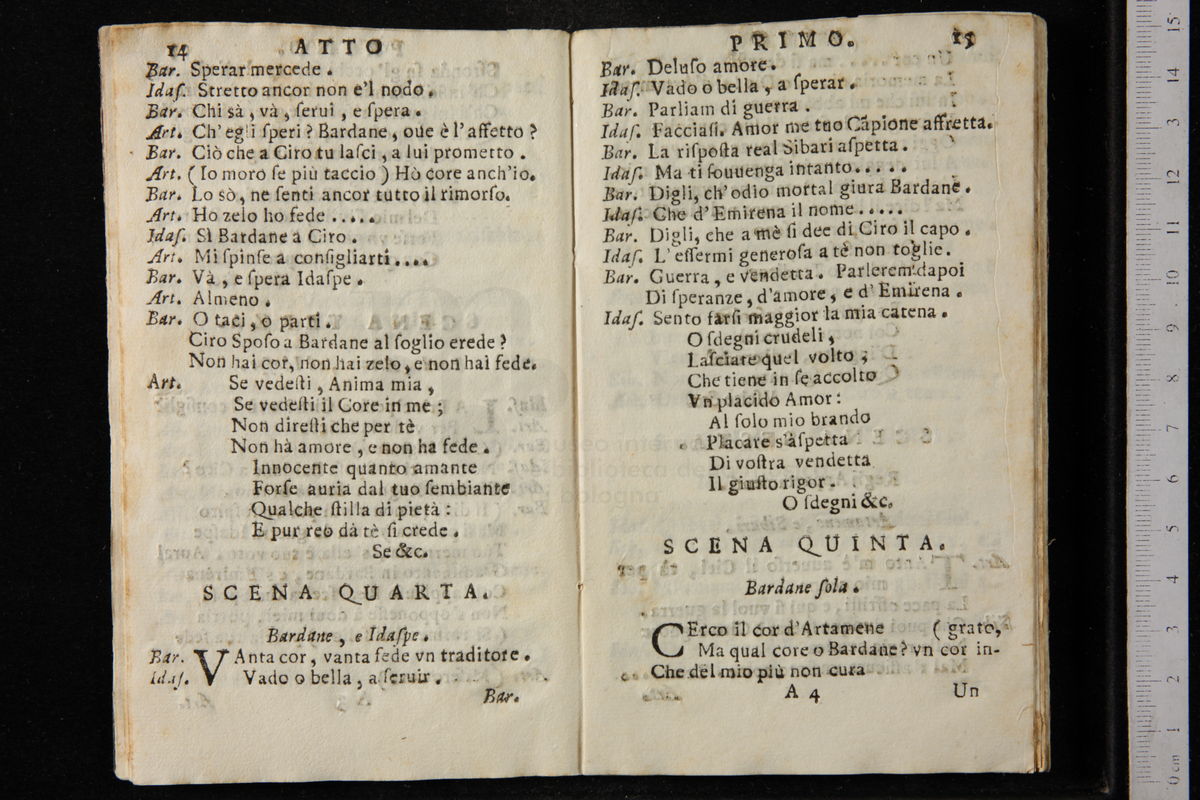 14 ATTO
Bar. Sperar mercede.
Idaſ. Stretto ancor non e'l nodo.
Bar. Chi sà, và, ſerui, e ſpera.
Art. Ch'egli ſperi? Bardane, oue è l'affetto?
Bar. Ciò che a Ciro tu laſci, a lui prometto.
Art. (Io moro ſe più taccio) Hò core anch'io.
Bar. Lo sò, ne ſenti ancor tutto il rimorſo.
Art. Ho zelo ho fede .....
Idaſ. Sì Bardane a Ciro.
Art. Mi ſpinſe a conſigliarti....
Bar. Và, e ſpera Idaſpe.
Art. Almeno.
Bar. O taci, o parti.
Ciro Spoſo a Bardane al ſoglio erede?
Non hai cor, non hai zelo, e non hai fede.
Art. Se vedeſti, Anima mia,
Se vedeſti il Core in me;
Non direſti che per tè
Non hà amore, e non ha fede.
Innocente quanto amante
Forſe auria dal tuo ſembiante
Qualche ſtilla di pietà:
E pur reo dà tè ſi crede.
Se &c.
SCENA QUARTA.
Bardane, e Idaſpe.
Bar. VAnta cor, vanta fede vn traditore.
Idaſ. Vado o bella, a ſeruir.
Bar.
PRIMO. 15
Bar. Deluſo amore.
Idaſ. Vado o bella, a ſperar.
Bar. Parliam di guerra.
Idaſ. Facciaſi. Amor me tuo Campione affretta.
Bar. La riſpoſta real Sibari aſpetta.
Idaſ. Ma ti ſouuenga intanto.....
Bar. Digli, ch'odio mortal giura Bardane.
Idaſ. Che d'Emirena il nome.....
Bar. Digli, che a mè ſi dee di Ciro il capo.
Idaſ. L'eſſermi generoſa a tè non toglie.
Bar. Guerra, e vendetta. Parlerem dapoi
Di ſperanze, d'amore, e d'Emirena.
Idaſ. Sento farſi maggior la mia catena.
O ſdegni crudeli,
Laſciate quel volto;
Che tiene in ſe accolto
Vn placido Amor:
Al ſolo mio brando
Placare s'aſpetta
Di voſtra vendetta
Il giuſto rigor.
O ſdegni &c.
SCENA QUINTA.
Bardane ſola.
CErco il cor d'Artamene (grato,
Ma qual core o Bardane? vn cor in-
Che del mio più non cura
A 4 Un